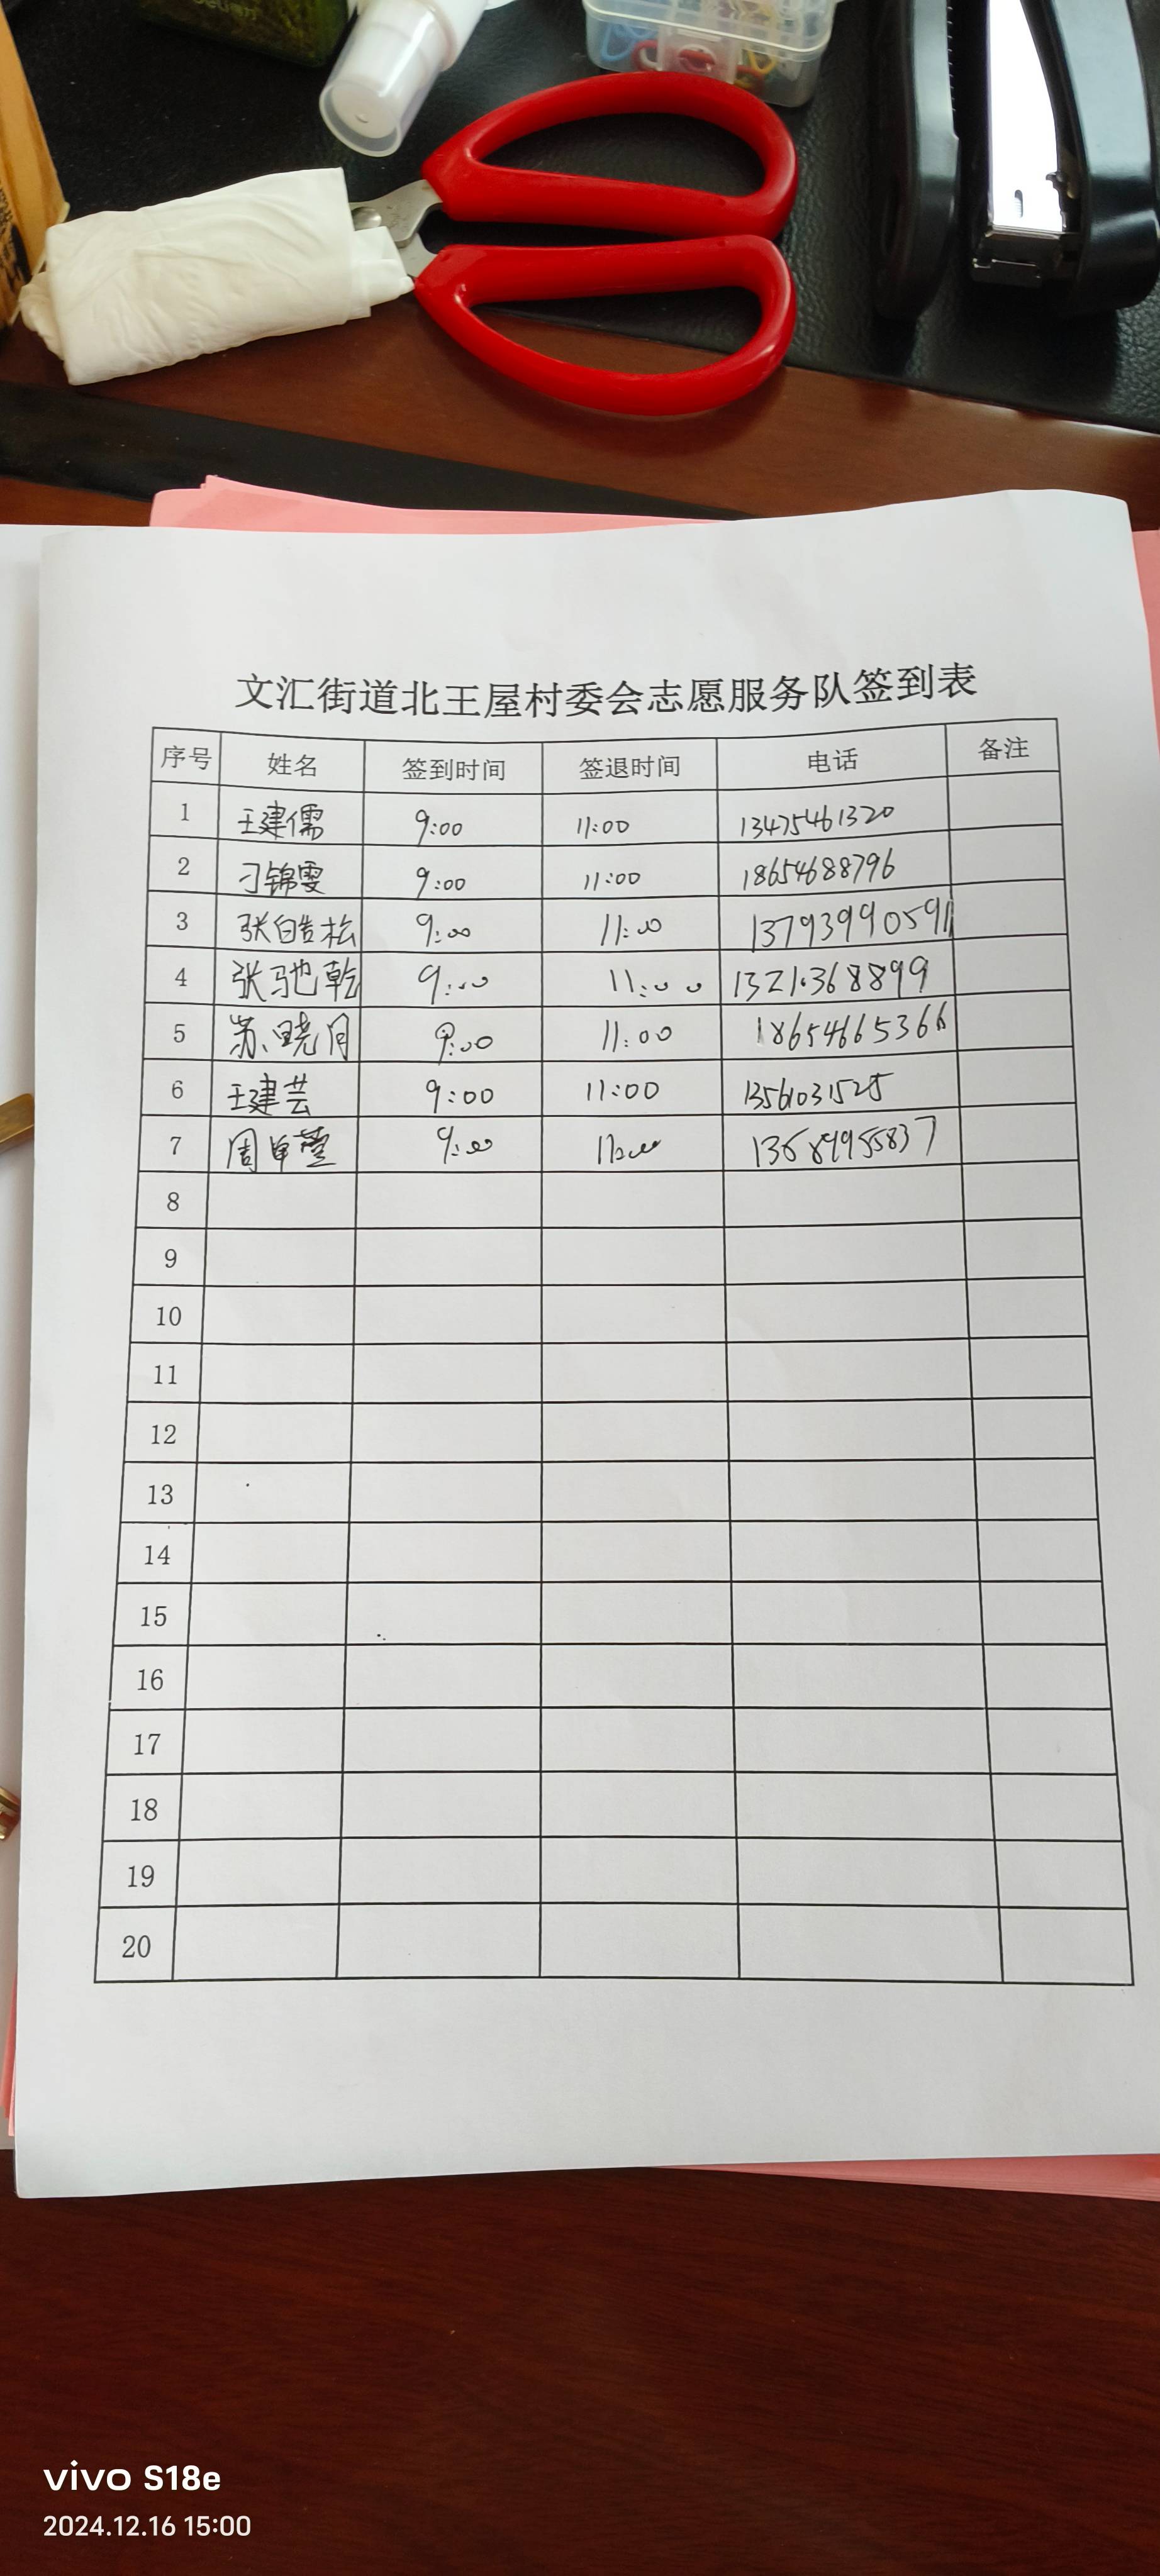 文汇街道北王屋村委会志愿服务队签到表
序号 姓名 签到时间 签退时间 电话 备注
1 王建儒 9:00 11:00 13475461320
2 刁锦雯 9:00 11:00 18654688796
3 张皓松 9:00 11:00 13793990591
4 张驰乾 9:00 11:00
5 苏晓月 9:00 11:00 18654665366
6 王建芸 9:00 11:00 13561031525
7 周 9:00 11:00
8
9
10
11
12
13
14
15
16
17
18
19
20
vivo S18e
2024.12.16 15:00